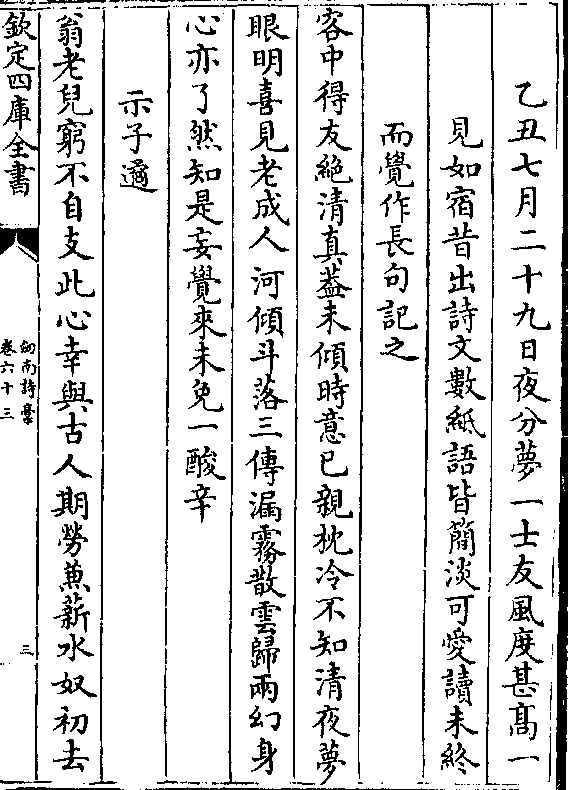 乙丑七月二十九日夜分夢一士友風度甚髙一
見如宿昔出詩文數紙語皆簡淡可愛讀未終
而覺作長句記之
客中得友絶清真葢未傾時意已親枕冷不知清夜夢
眼明喜見老成人河傾斗落三傳漏霧散雲歸兩幻身
心亦了然知是妄覺來未免一酸辛
示子遹
翁老兒窮不自支此心幸與古人期勞兼薪水奴初去
欽定四庫全書
劍南詩藁
卷六十三
三